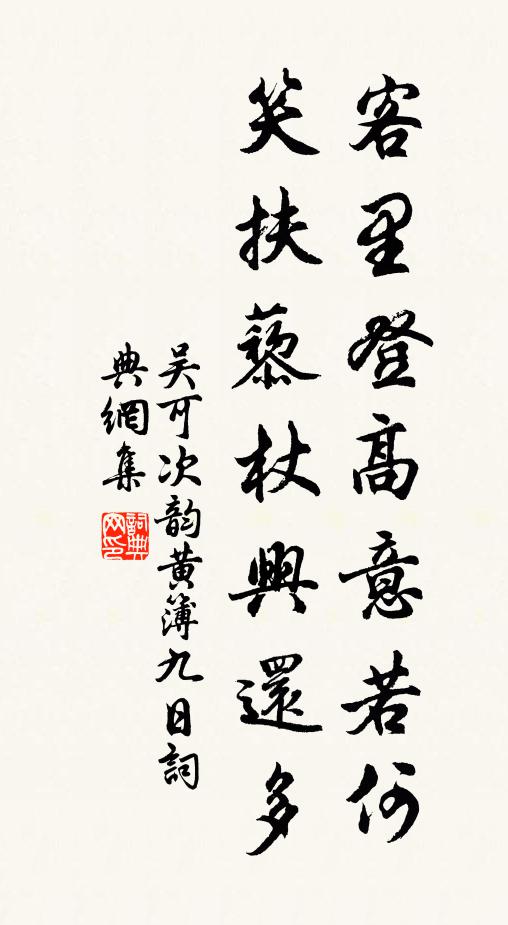 客里登高意若何
笑扶藜杖興還多
吳可次韵黃簿九日詞
典網集
詞典网印